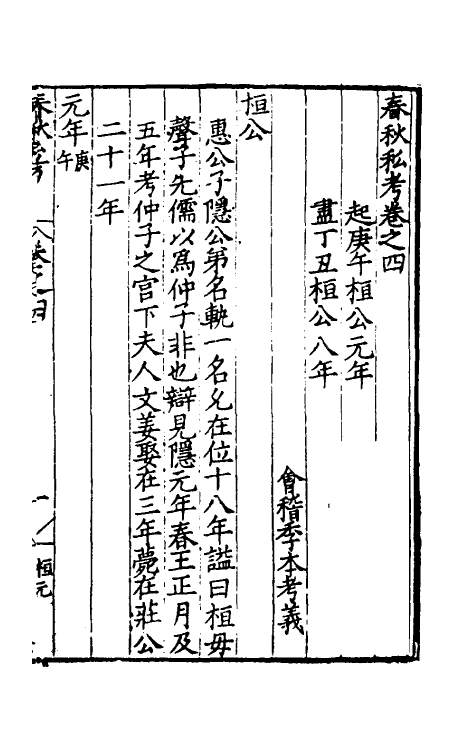 春秋私考卷之四
起庚午桓公元年
盡丁丑桓公八年
會稽季本考義
桓公
惠公子隱公弟名軌一名允在位十八年諡曰桓母
聲子先儒以爲仲子非也辯見隱元年春王正月及
五年考仲子之宮下夫人文姜娶在三年薨在莊公
二十一年
元年庚午
春秋私考 卷之四 一 桓元